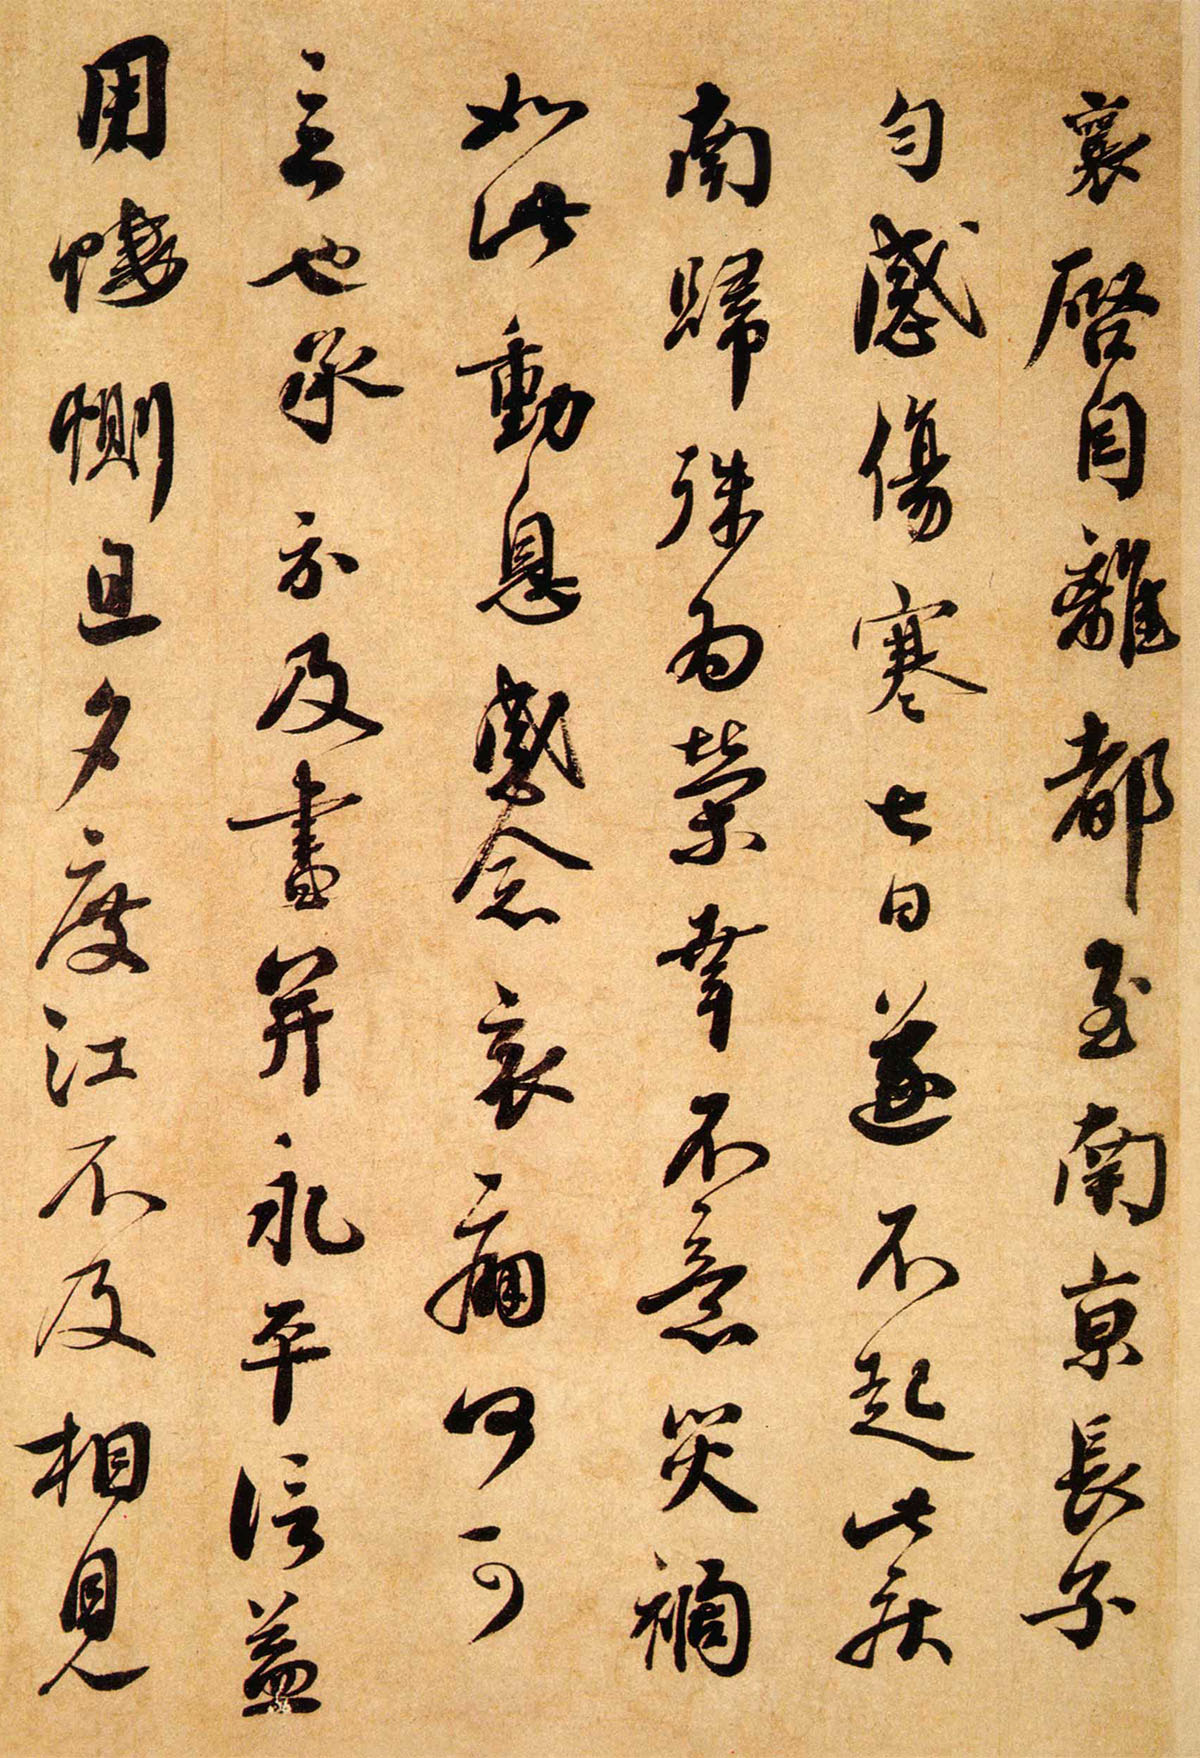 襄啓自離都至南京長子
匀感傷寒七日遂不起此疾
南歸殊為榮幸不意災禍
如此動息感念哀痛何可
言也承示及書并永平信益
用悽惻旦夕度江不及相見